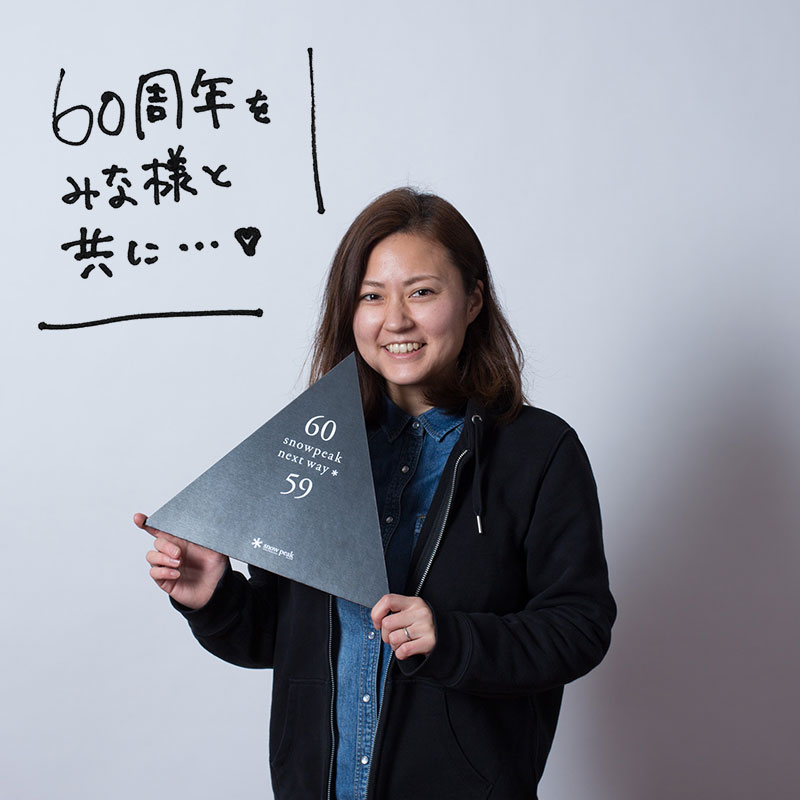 60周年を
みな様と
共に…♥
60
snowpeak
next way*
59
snow peak